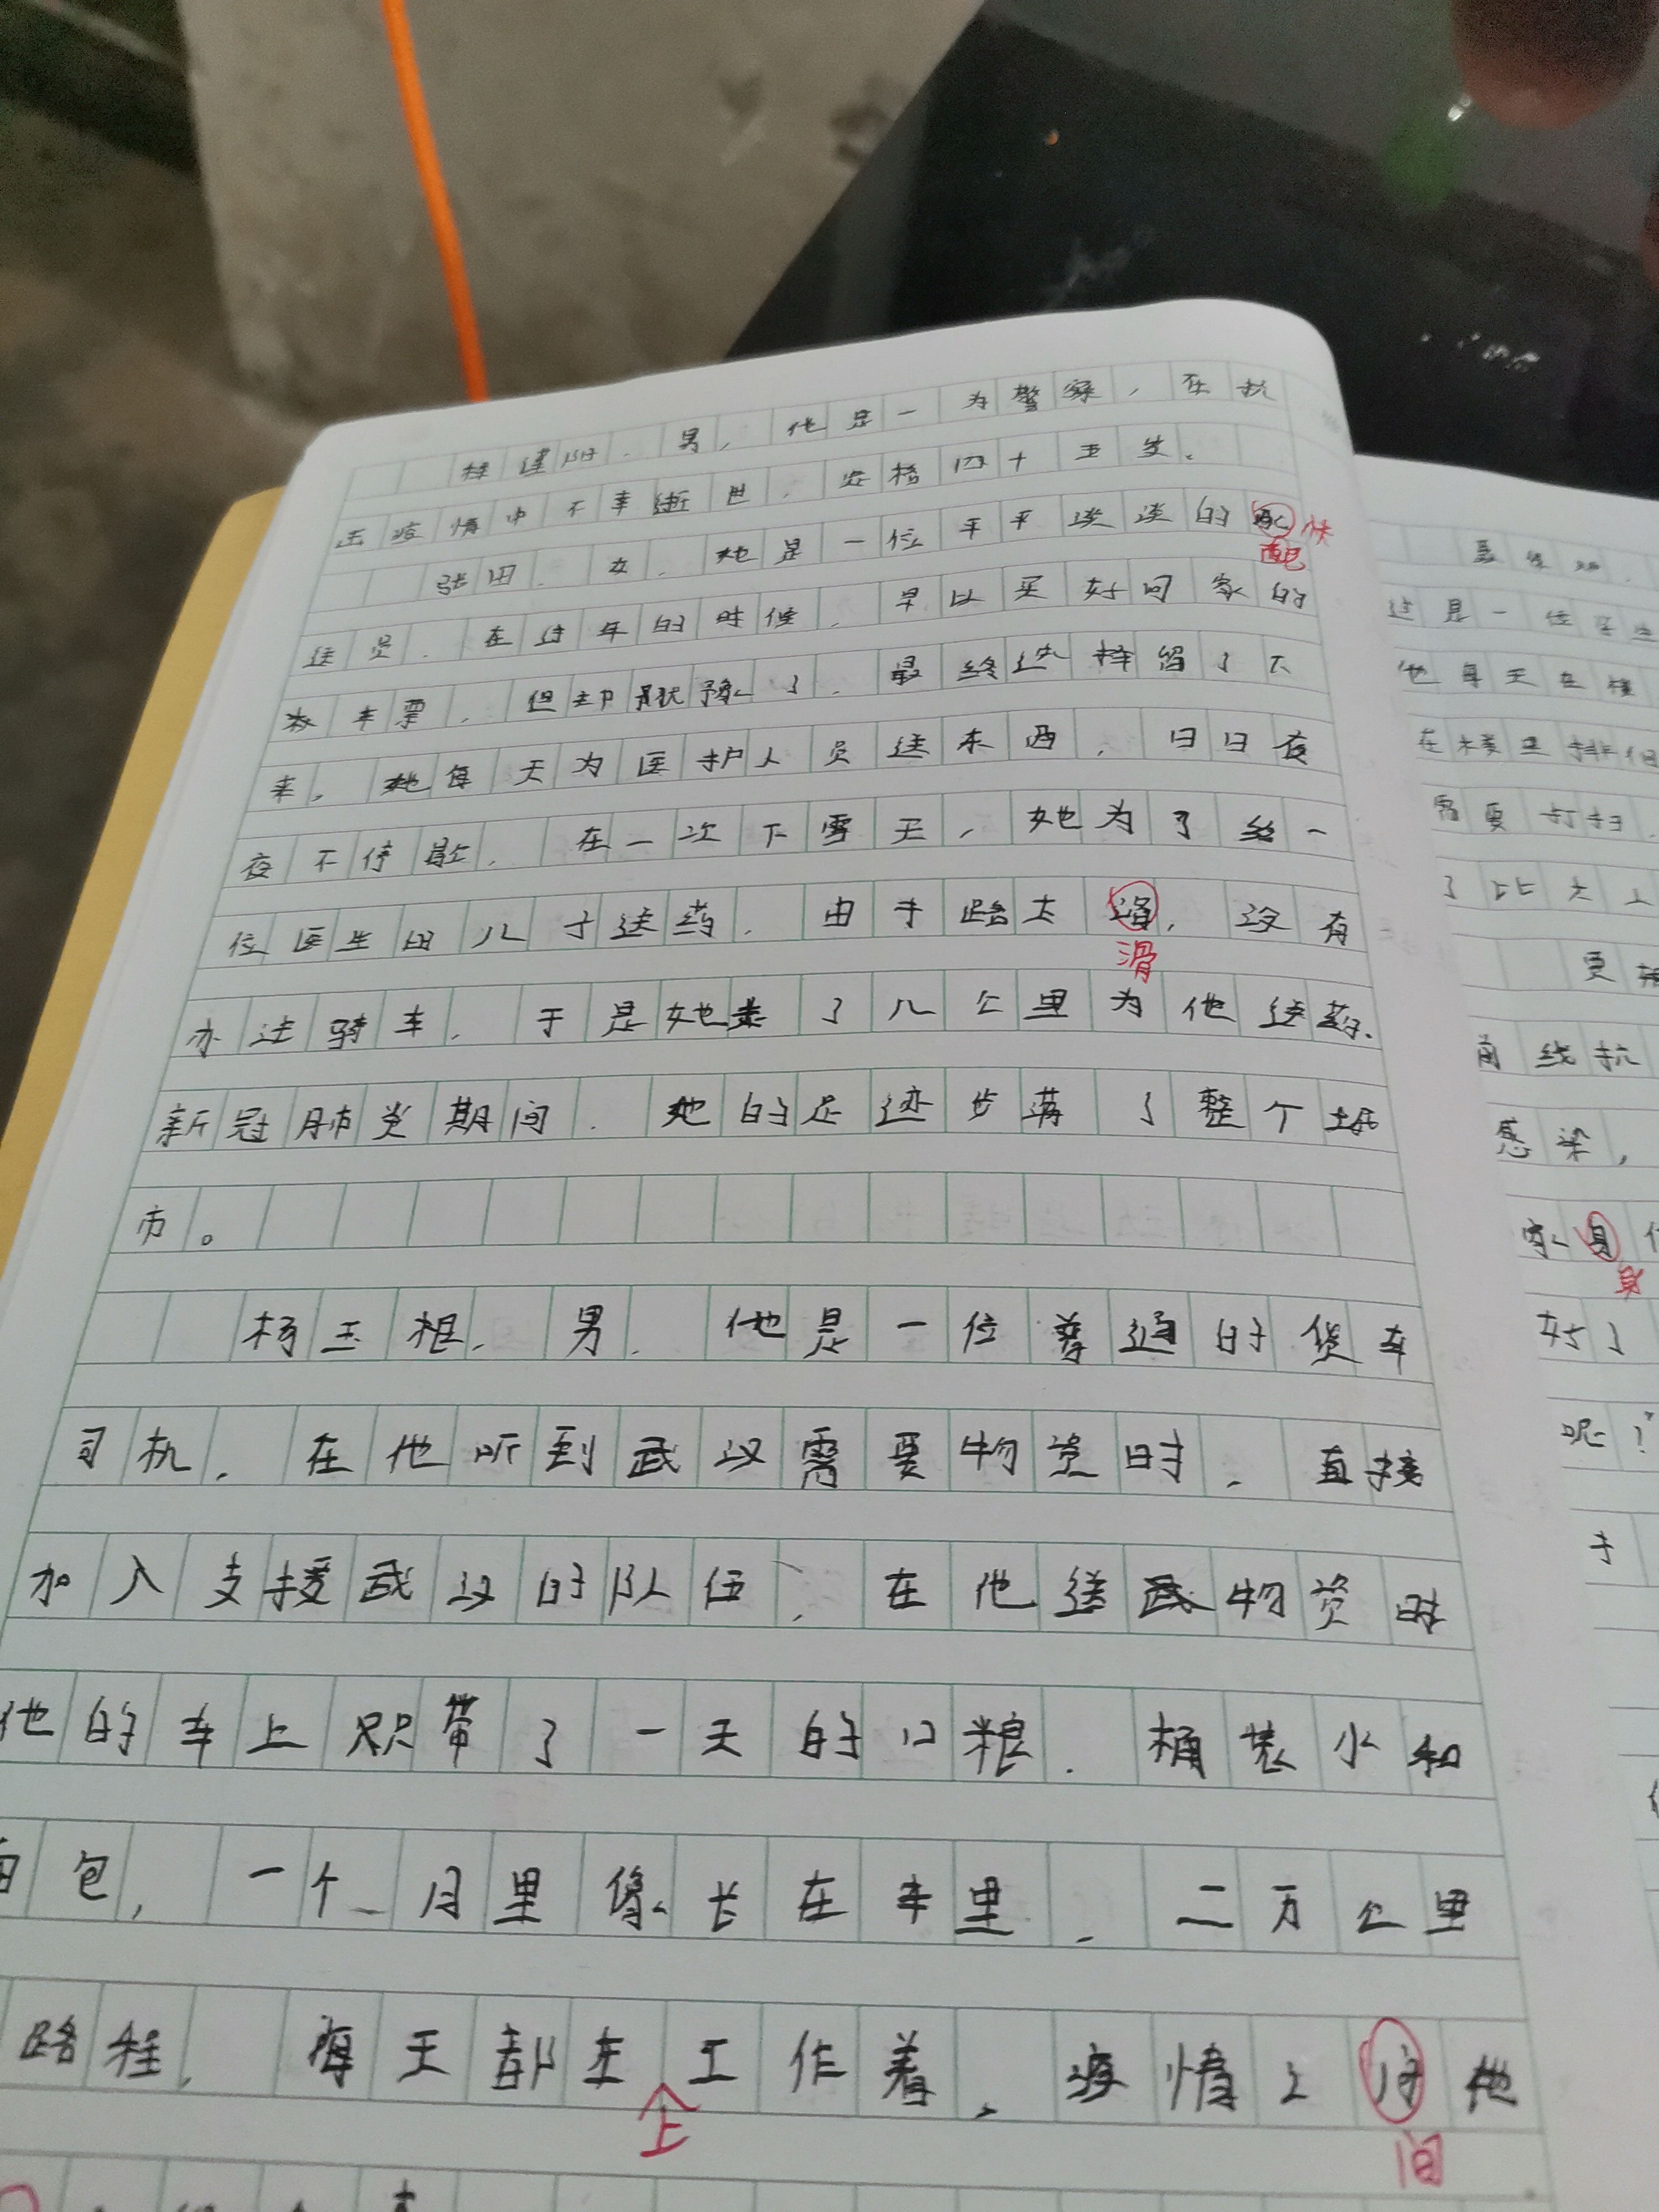 男，他是一为警察，在抗
击疫情中不幸逝世，四十五岁。
张田，女，她是一位平平淡淡的配
送员，在过年的时候，早以买好回家的
车票，但却犹豫了，最终选择留了下
来，她每天为医护人员送东西，日日夜
夜不停歇，在一次下雪天，她为了给一
位医生的儿子送药，由于路太滑，没有
办法骑车，于是她走了几公里为他送药。
新冠肺炎期间，她的足迹步满了整个城
市。
杨玉框，男，他是一位普通的货车
司机，在他听到武汉需要物资时，直接
加入支援武汉的队伍，在他送武物资时
他的车上只带了一天的口粮，桶装水和
面包，一个月里像长在车里，二万公里
路程，每天都在上工作着，疫情之间他
这是一位学生
他每天在楼
在楼里
需要打扫，
了比大
更
前线抗
感染，
家身
好了
呢！
于